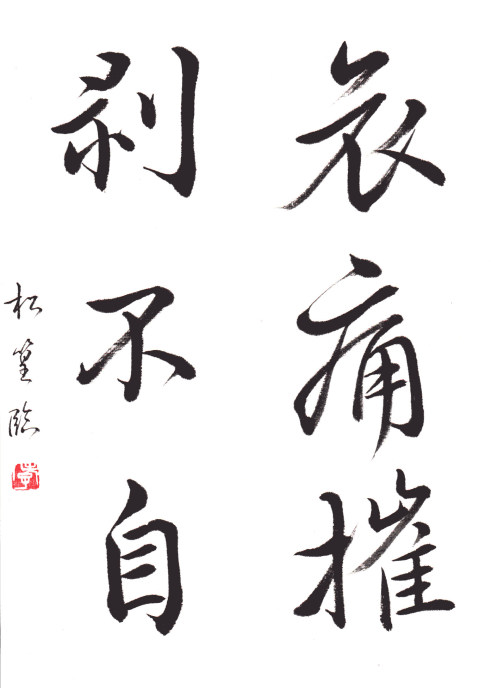 哀痛摧
剥不自
松篁臨